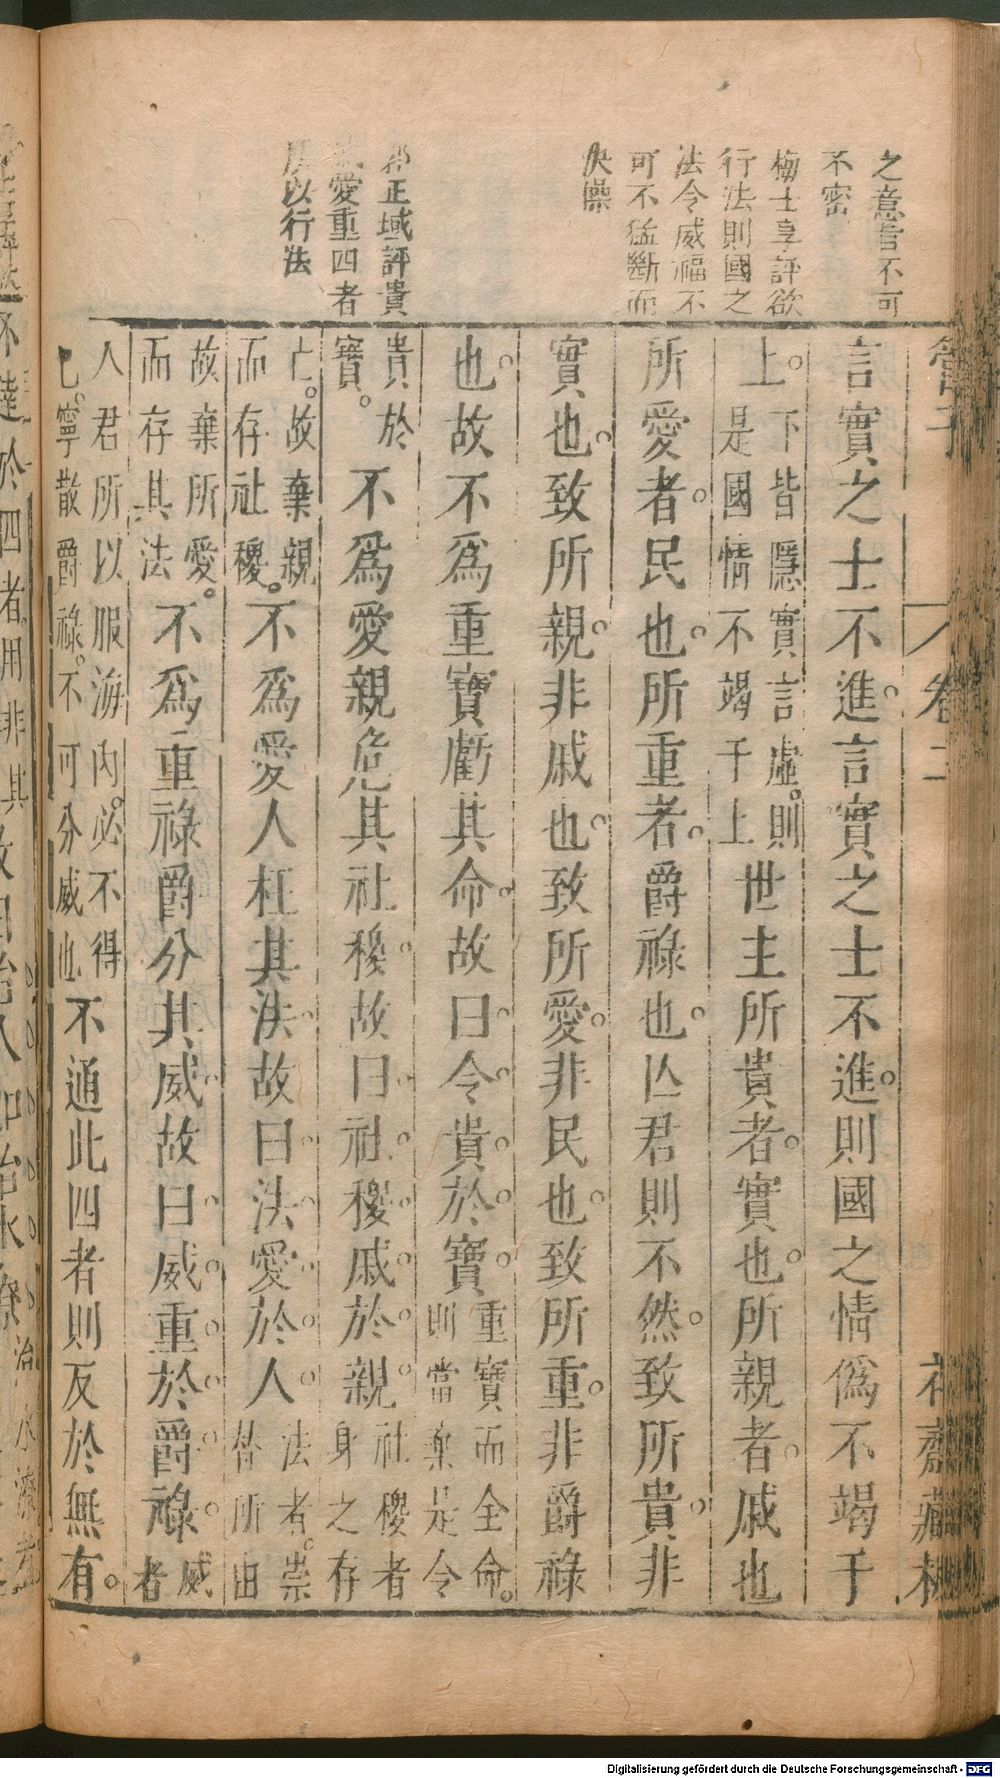 之意皆不可
不密
梅士享評欲
行法則國之
法令威福不
可不猛斷而
決操
正域評貴
愛重四者
以行法
管子
卷二
花齋藏板
言實之士不進言實之士不進則國之情僞不竭于
上下皆隱實言虛則是國情不竭于上世主所貴者實也所親者戚也
所愛者民也所重者爵祿也亾君則不然致所貴非
實也致所親非戚也致所愛非民也致所重非爵祿
也故不爲重寶虧其命故曰令貴於寶重寶而全命則當棄是令
貴於寶不爲愛親危其社稷故曰社稷戚於親社稷者身之存
亡故棄親而存社稷不爲愛人枉其法故曰法愛於人法者崇替所由
故棄所愛而存其法不爲重祿爵分其威故曰威重於爵祿威者
人君所以服海內必不得已寧散爵祿不可分威也不通此四者則反於無有
不達於四者用非其
治水潦者
Digitalisierung gefördert durch die Deutsche Forschungsgemeinschaft - DFG